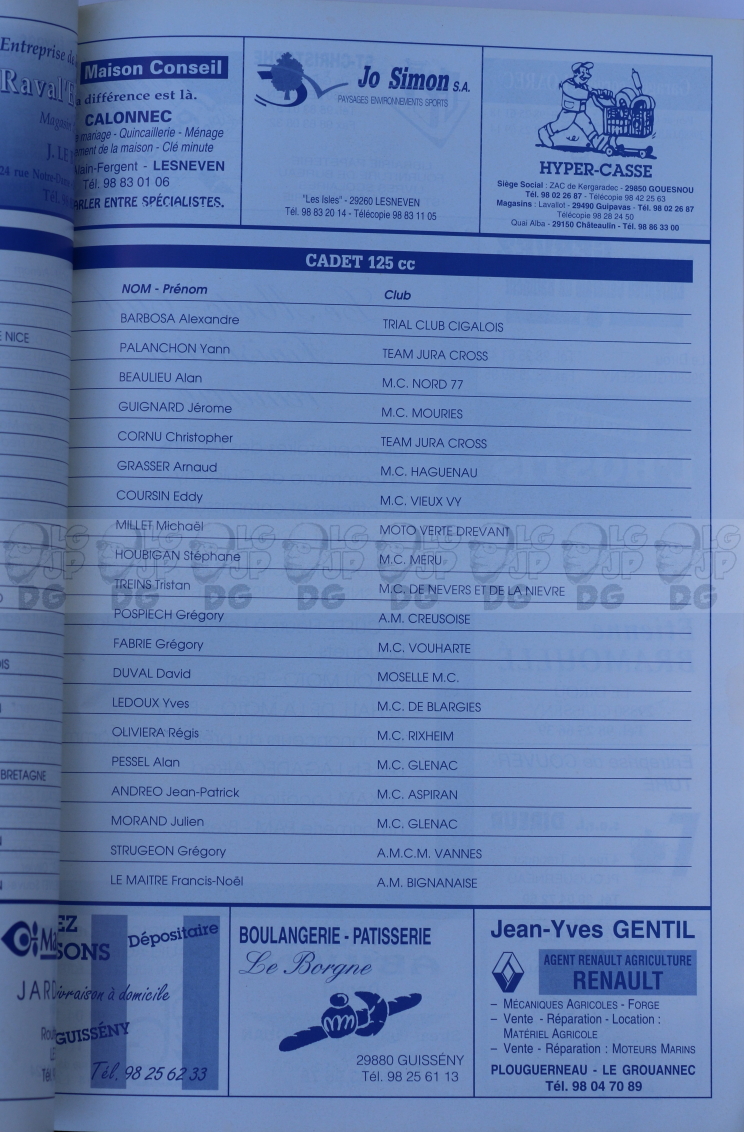 Entreprise
Raval'E
Magasin
24 rue Notre-Dame
NICE
BRETAGNE
Maison Conseil
a différence est là.
CALONNEC
mariage - Quincaillerie - Ménage
ement de la maison - Clé minute
ain-Fergent - LESNEVEN
Tél. 98 83 01 06
ARLER ENTRE SPÉCIALISTES.
Jo Simon S.A.
PAYSAGES ENVIRONNEMENTS SPORTS
"Les Isles" - 29260 LESNEVEN
Tél. 98 83 20 14 - Télécopie 98 83 11 05
HYPER-CASSE
Siège Social : ZAC de Kergaradec - 29850 GOUESNOU
Tél. 98 02 26 87 - Télécopie 98 42 25 63
Magasins : Lavallot - 29490 Guipavas - Tél. 98 02 26 87
Télécopie 98 28 24 50
Quai Alba - 29150 Châteaulin - Tél. 98 86 33 00
CADET 125 cc
NOM - Prénom Club
BARBOSA Alexandre TRIAL CLUB CIGALOIS
PALANCHON Yann TEAM JURA CROSS
BEAULIEU Alan M.C. NORD 77
GUIGNARD Jérome M.C. MOURIES
CORNU Christopher TEAM JURA CROSS
GRASSER Arnaud M.C. HAGUENAU
COURSIN Eddy M.C. VIEUX VY
MILLET Michaël MOTO VERTE DREVANT
HOUBIGAN Stéphane M.C. MERU
TREINS Tristan M.C. DE NEVERS ET DE LA NIEVRE
POSPIECH Grégory A.M. CREUSOISE
FABRIE Grégory M.C. VOUHARTE
DUVAL David MOSELLE M.C.
LEDOUX Yves M.C. DE BLARGIES
OLIVIERA Régis M.C. RIXHEIM
PESSEL Alan M.C. GLENAC
ANDREO Jean-Patrick M.C. ASPIRAN
MORAND Julien M.C. GLENAC
STRUGEON Grégory A.M.C.M. VANNES
LE MAITRE Francis-Noël A.M. BIGNANAISE
EZ
SONS
Dépositaire
JARD
Livraison à domicile
GUISSÉNY
Tél. 98 25 62 33
BOULANGERIE - PATISSERIE
Le Borgne
29880 GUISSÉNY
Tél. 98 25 61 13
Jean-Yves GENTIL
AGENT RENAULT AGRICULTURE
RENAULT
– MÉCANIQUES AGRICOLES - FORGE
– Vente - Réparation - Location :
MATÉRIEL AGRICOLE
– Vente - Réparation : MOTEURS MARINS
PLOUGUERNEAU - LE GROUANNEC
Tél. 98 04 70 89
LG JP DG LG JP DG LG JP DG LG JP DG LG JP DG LG JP DG LG JP DG LG JP DG